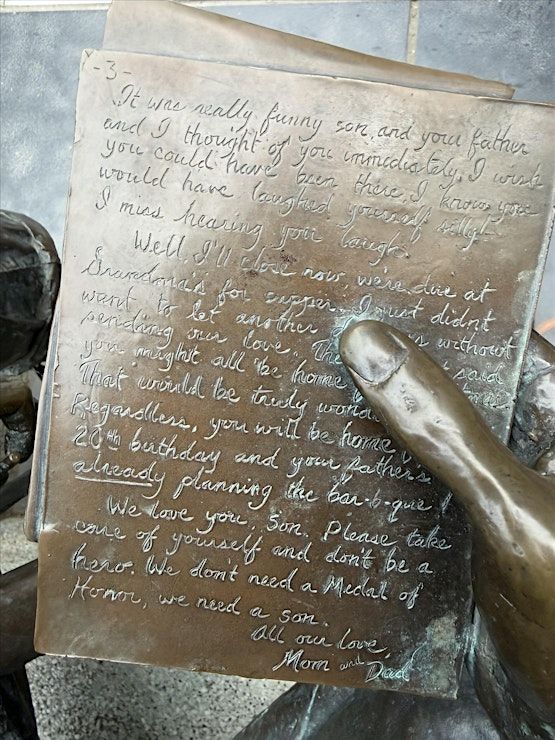 -3-
It was really funny son, and your father
and I thought of you immediately. I wish
you could have been there, I know you
would have laughed yourself silly!
I miss hearing your laugh.
Well, I'll close now, we're due at
Grandma's for supper. I just didn't
want to let another without
sending our love. said
you might all be home
That would be truly
Regardless, you will be home
20th birthday and your father's
already planning the bar-b-que!
We love you, Son. Please take
care of yourself and don't be a
hero. We don't need a Medal of
Honor, we need a son.
All our love,
Mom and Dad